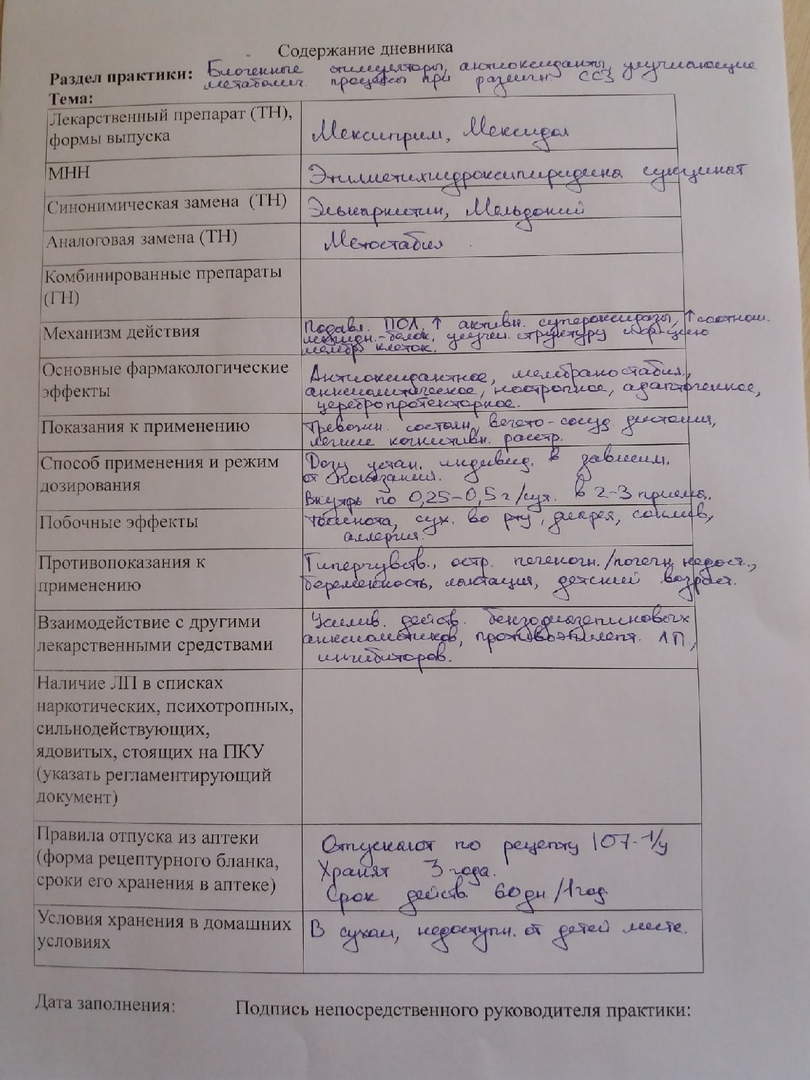 Содержание дневника
Раздел практики: Биогенные стимуляторы, антиоксиданты, улучшающие
метаболич. процессы при развити ССЗ
Тема:
Лекарственный препарат (ТН),
формы выпуска
Мексиприм, Мексидол
МНН
Этилметилгидроксипиридина сукцинат
Синонимическая замена (ТН)
Элькарнитин, Мельдоний
Аналоговая замена (ТН)
Метостабил
Комбинированные препараты
(ТН)
Механизм действия
Подавл. ПОЛ, ↑ активн. супероксидазы, ↑ соотнош.
липидн.-белок, улучш. структуру и функцию
мембр клеток.
Основные фармакологические
эффекты
Антиоксидантное, мембраностабил.,
анксиолитическое, ноотропное, адаптогенное,
церебропротекторное.
Показания к применению
Тревожн. состоян, вегето-сосуд дистония,
легкие когнитивн. расстр.
Способ применения и режим
дозирования
Дозу устан. индивид. в зависим.
от показаний.
Внутрь по 0,25-0,5 г/сут. в 2-3 приема.
Побочные эффекты
Тошнота, сух. во рту, диарея, сонлив,
аллергия.
Противопоказания к
применению
Гиперчувств., остр. печеночн./почечн недост.,
беременность, лактация, детский возраст.
Взаимодействие с другими
лекарственными средствами
Усилив. действ. бензодиазепиновых
анксиолитиков, противоэпилепт. ЛП,
ингибиторов.
Наличие ЛП в списках
наркотических, психотропных,
сильнодействующих,
ядовитых, стоящих на ПКУ
(указать регламентирующий
документ)
Правила отпуска из аптеки
(форма рецептурного бланка,
сроки его хранения в аптеке)
Отпускают по рецепту 107-1/у
Хранят 3 года.
Срок действ. 60дн /1год
Условия хранения в домашних
условиях
В сухом, недоступн. от детей месте.
Дата заполнения: Подпись непосредственного руководителя практики: